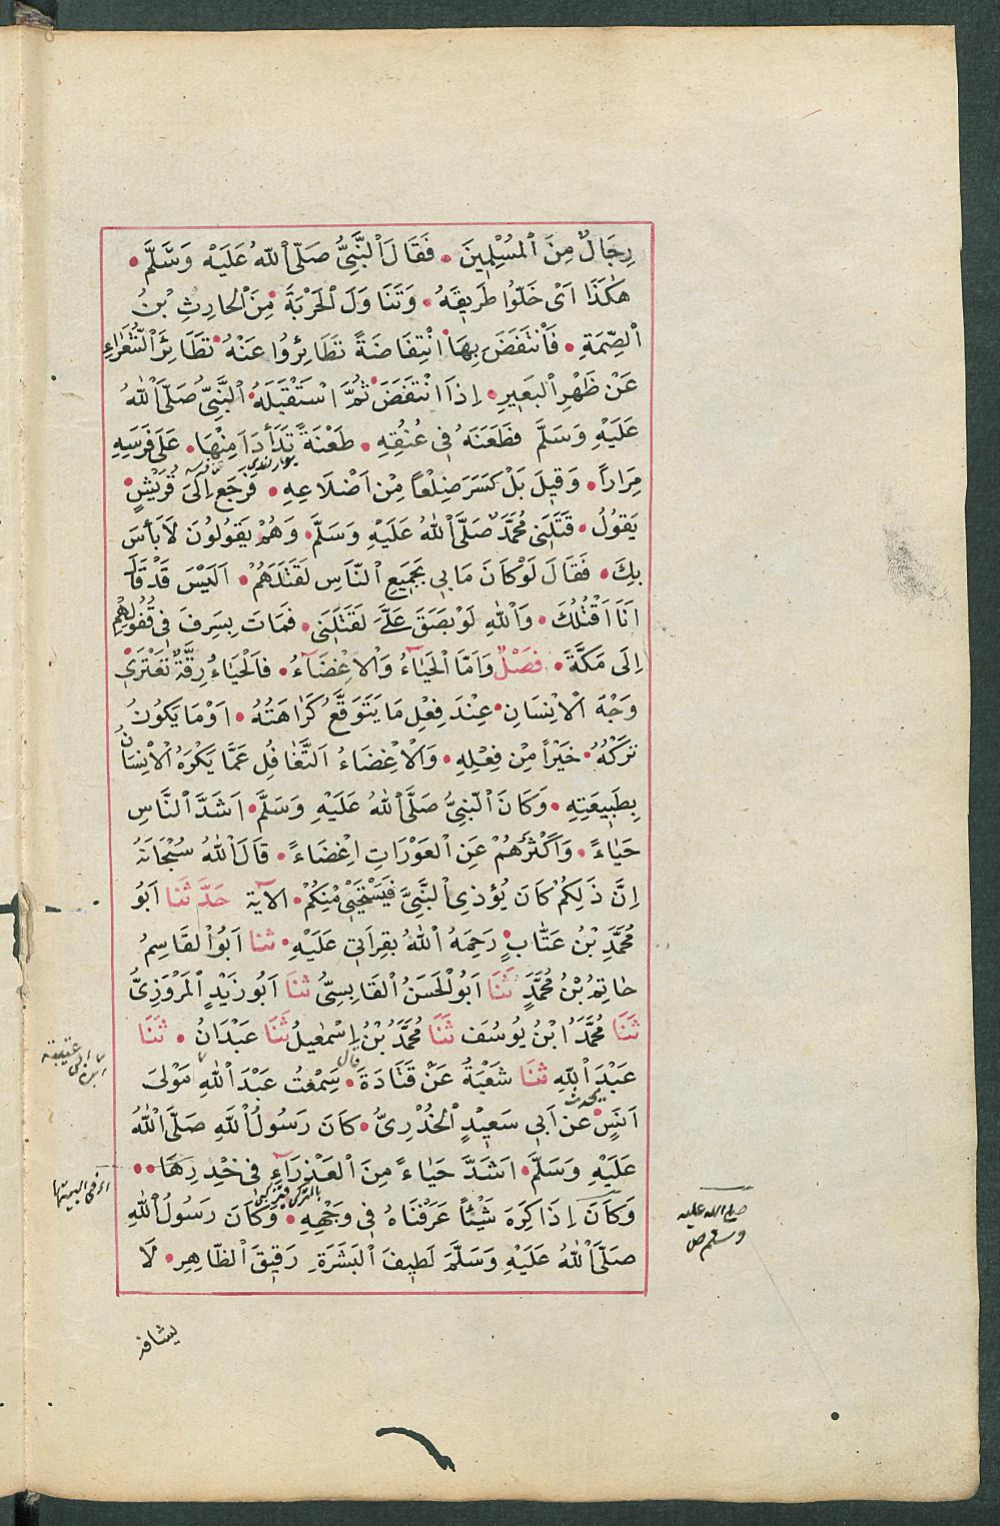 رِجَالٌ مِنَ الْمُسْلِمِينَ • فَقَالَ النَّبِىُّ صَلَّى اللهُ عَلَيْهِ وَسَلَّمَ •
هٰكَذَا اَىْ خَلُّوا طَرِيقَهُ • وَتَنَاوَلَ الْحَرْبَةَ مِنَ الْحَارِثِ بْنِ
الصِّمَّةِ • فَانْتَفَضَ بِهَا انْتِفَاضَةً تَطَايَرُوا عَنْهُ تَطَايُرَ الشَّعْرَاءِ
عَنْ ظَهْرِ الْبَعِيرِ • اِذَا انْتَفَضَ ثُمَّ اسْتَقْبَلَهُ النَّبِىُّ صَلَّى اللهُ
عَلَيْهِ وَسَلَّمَ فَطَعَنَهُ فِى عُنُقِهِ • طَعْنَةً تَدَأْدَأَ مِنْهَا • عَلَى فَرَسِهِ
مِرَاراً • وَقِيلَ بَلْ كَسَرَ ضِلْعاً مِنْ اَضْلَاعِهِ • فَرَجَعَ اِلَى قُرَيْشٍ
يَقُولُ • قَتَلَنِى مُحَمَّدٌ صَلَّى اللهُ عَلَيْهِ وَسَلَّمَ • وَهُمْ يَقُولُونَ لَا بَأْسَ
بِكَ • فَقَالَ لَوْ كَانَ مَا بِى بِجَمِيعِ النَّاسِ لَقَتَلَهُمْ • اَلَيْسَ قَدْ قَالَ
اَنَا اَقْتُلُكَ • وَاللهِ لَوْ بَصَقَ عَلَىَّ لَقَتَلَنِى • فَمَاتَ بِسَرِفَ فِى قُفُولِهِمْ
اِلَى مَكَّةَ • فَصْلٌ وَاَمَّا الْحَيَاءُ وَالْاِغْضَآءُ • فَالْحَيَاءُ رِقَّةٌ تَعْتَرِى
وَجْهَ الْاِنْسَانِ • عِنْدَ فِعْلِ مَا يَتَوَقَّعُ كَرَاهَتُهُ • اَوْ مَا يَكُونُ
تَرْكُهُ • خَيْراً مِنْ فِعْلِهِ • وَالْاِغْضَاءُ التَّغَافُلُ عَمَّا يَكْرَهُ الْاِنْسَانُ
بِطَبِيعَتِهِ • وَكَانَ النَّبِىُّ صَلَّى اللهُ عَلَيْهِ وَسَلَّمَ • اَشَدَّ النَّاسِ
حَيَاءً • وَاَكْثَرَهُمْ عَنِ الْعَوْرَاتِ اِغْضَاءً • قَالَ اللهُ سُبْحَانَهُ
اِنَّ ذٰلِكُمْ كَانَ يُؤْذِى النَّبِىَّ فَيَسْتَحْيِى مِنْكُمْ • الآيَة حَدَّثَنَا اَبُو
مُحَمَّدِ بْنُ عَتَّابٍ رَحِمَهُ اللهُ بِقِرَاتِى عَلَيْهِ • ثنا اَبُو الْقَاسِمِ
حَاتِمُ بْنُ مُحَمَّدٍ ثَنَا اَبُو الْحَسَنِ الْقَابِسِىُّ ثنَا اَبُو زَيْدٍ الْمَرْوَزِىُّ
ثَنَا مُحَمَّدُ ابْنُ يُوسُفَ ثَنَا مُحَمَّدُ بْنُ اِسْمٰعِيلَ ثَنَا عَبْدَانُ • ثَنَا
عَبْدُ اللهِ ثنَا شُعْبَةُ عَنْ قَتَادَةَ • قال سَمِعْتُ عَبْدَ اللهِ مَوْلَى
ابن ابى عتيبة
اَنَسٍ يحدث عَنْ اَبِى سَعِيدٍ الْخُدْرِىِّ • كَانَ رَسُولُ اللهِ صَلَّى اللهُ
عَلَيْهِ وَسَلَّمَ • اَشَدَّ حَيَاءً مِنَ الْعَذْرَآءِ فِى خِدْرِهَا ••
وَكَانَ اِذَا كَرِهَ شَيْئاً عَرَفْنَاهُ فِى وَجْهِهِ • وَكَانَ رَسُولُ اللهِ
صلى الله عليه
وسلم ص
صَلَّى اللهُ عَلَيْهِ وَسَلَّمَ لَطِيفَ الْبَشَرَةِ رَقِيقَ الظَّاهِرِ • لَا
يشافه